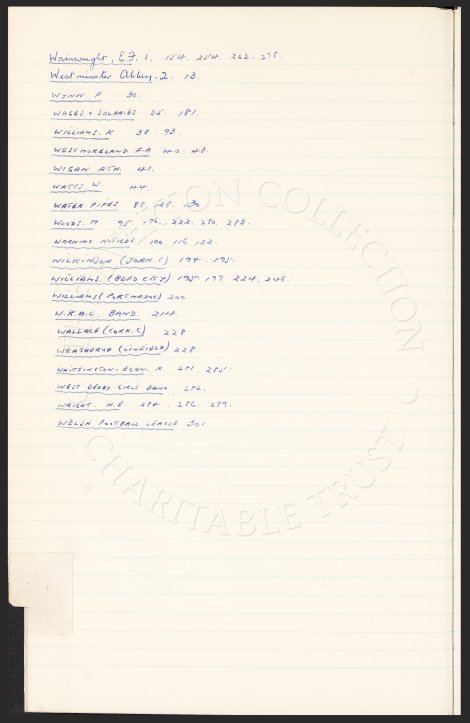 Wainwright. E.F. 1. 154. 254. 262. 278.
Westminster Abbey. 2. 13.
WYNN. F 30.
WAGES & SALARIES 35. 181.
WILLIAMS. K 38. 93
WESTMORELAND F.A 40. 43.
WIGAN ATH. 41.
WATTS W. 44.
WATER PIPES 88. 128. 130
WOODS. M 95. 176. 222. 280. 283.
WARNING NOTICES 100. 116. 122.
WILKINSON (YORK. C) 194. 195.
WILLIAMS. (BDFD CITY) 195. 197. 224. 246.
WILLIAMS (PORTMADOC) 200
W.R.A.C. BAND. 214.
WALLACE (CORK. C) 228
WEATHERUP (LINFIELD) 228
WHITTINGTON. EGAN. R. 281. 285.
WEST DERBY GIRLS BAND 282.
WRIGHT. H.E 284. 286. 299.
WELSH FOOTBALL LEAGUE 301
COLLECTION
CHARITABLE TRUST. C